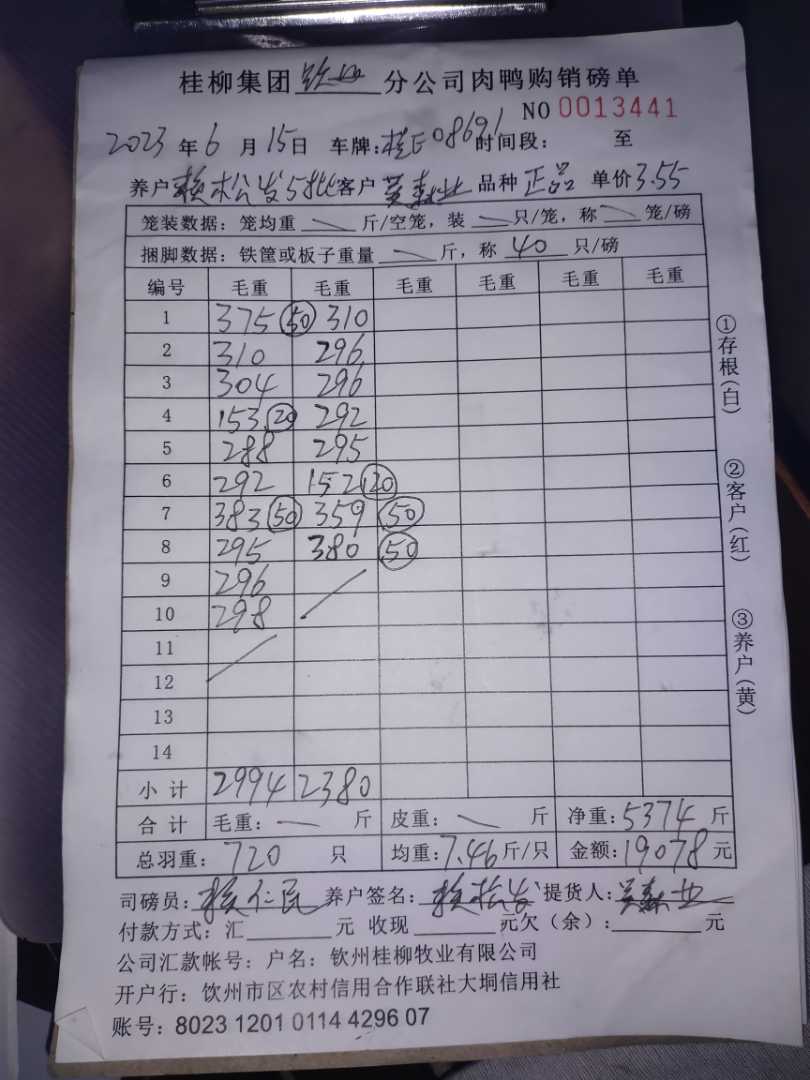 桂柳集团钦州分公司肉鸭购销磅单
NO 0013441
2023年6月15日 车牌:桂E08691时间段: 至
养户 赖松发5批客户 吴森业 品种 正品 单价3.55
笼装数据:笼均重 斤/空笼,装 只/笼,称 笼/磅
捆脚数据:铁筐或板子重量 斤,称 40 只/磅
编号 毛重 毛重 毛重 毛重 毛重 毛重
1 375 50 310
2 310 296
3 304 296
4 153 20 292
5 288 295
6 292 152 20
7 383 50 359 50
8 295 380 50
9 296
10 298
11
12
13
14
小计 2994 2380
合计 毛重: 斤 皮重: 斤 净重:5374斤
总羽重:720 只 均重:7.46斤/只 金额:19078元
司磅员:赖仁民 养户签名:赖松发 提货人:吴森业
付款方式:汇 元 收现 元欠(余): 元
公司汇款帐号:户名:钦州桂柳牧业有限公司
开户行:饮州市区农村信用合作联社大垌信用社
账号:8023 1201 0114 4296 07
①存根(白)
②客户(红)
③养户(黄)